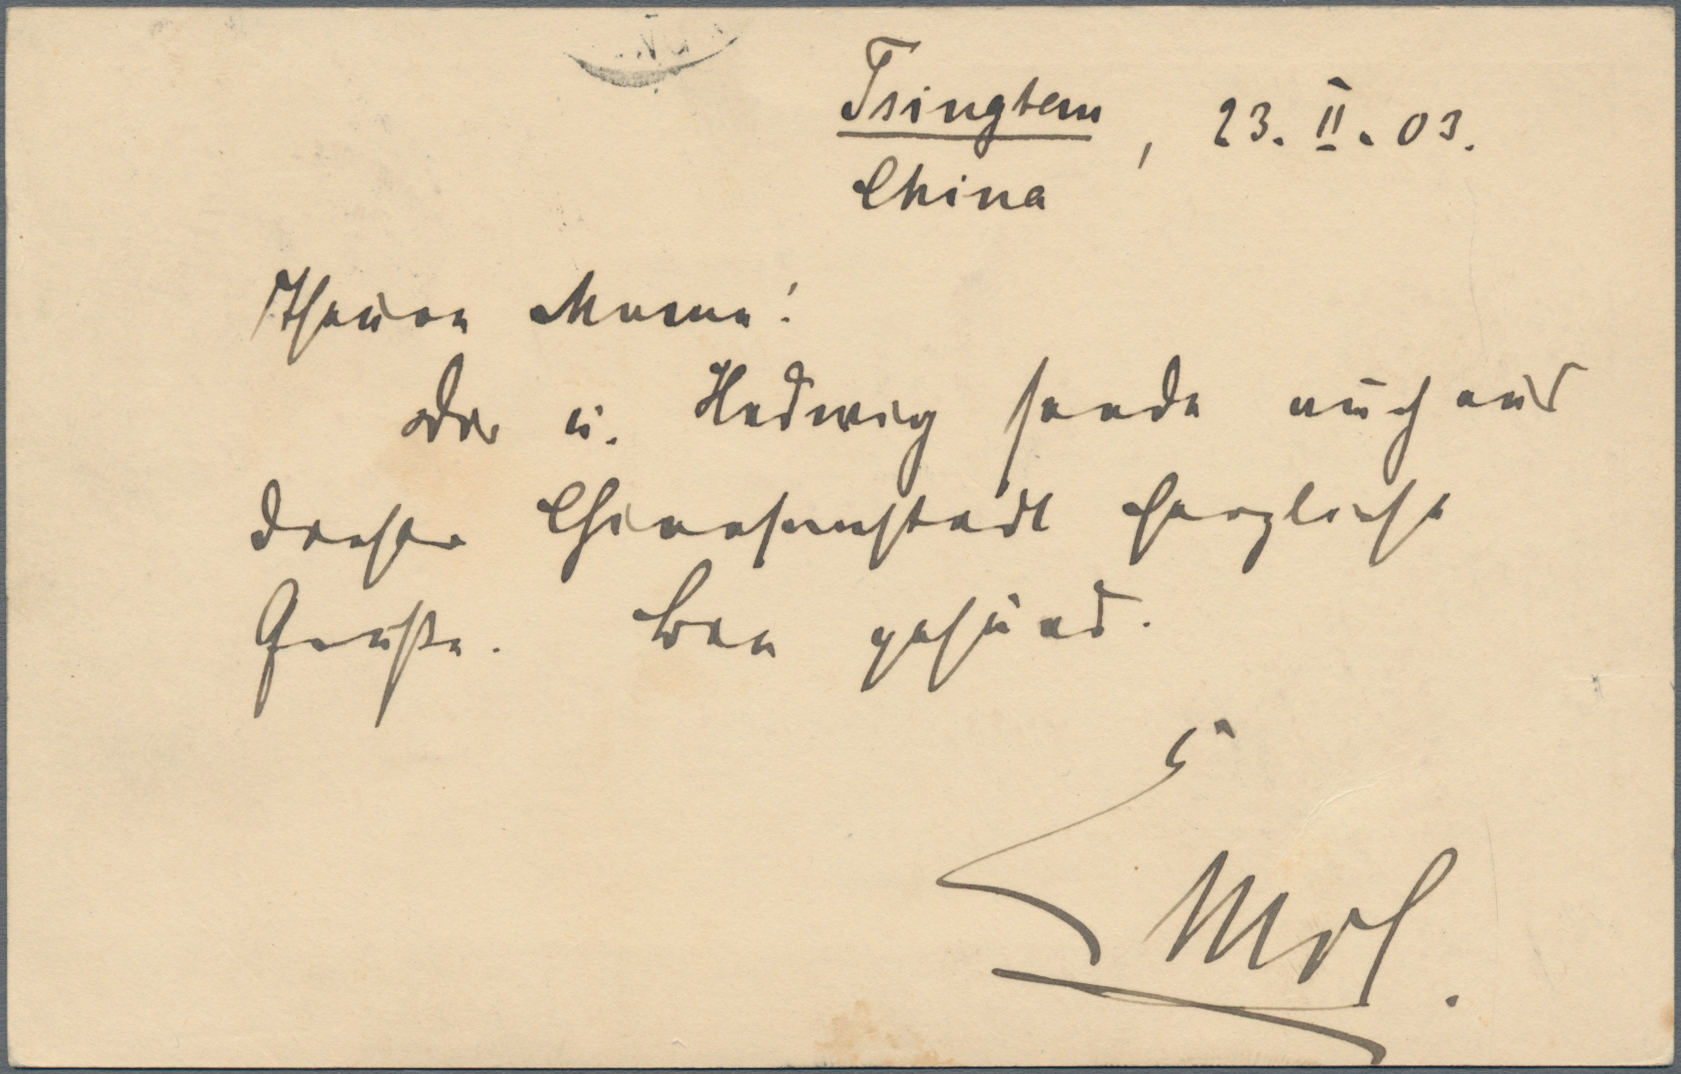 Tsingtau, 23. II. 03.
China
Theure Mama!
Dir u. Hedwig sende auch aus
dieser Chinesenstadt herzliche
Grüße. Bin gesund.